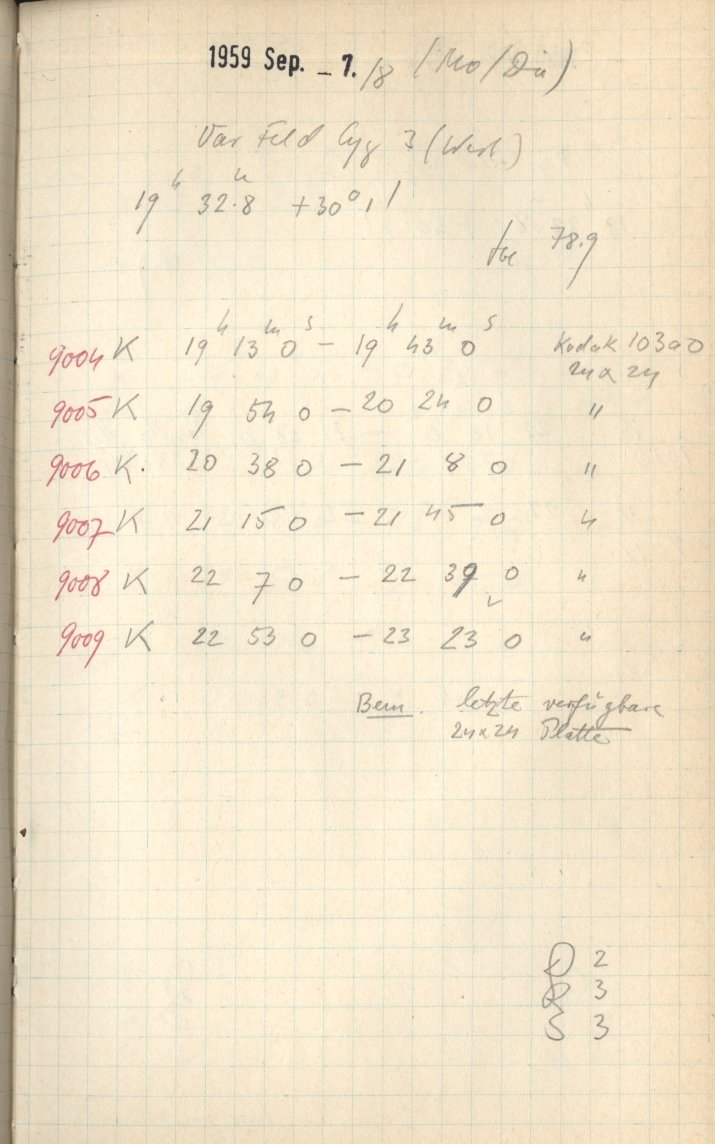 1959 Sep. – 7./8 (Mo/Di)
Var Feld Cyg 3 (West)
19h 32.8 +30° 11
78.9
9004 K 19h 13m 0s – 19h 43m 0s Kodak 103aO
24x24
9005 K 19 54 0 – 20 24 0 "
9006 K. 20 38 0 – 21 8 0 "
9007 K 21 15 0 – 21 45 0 "
9008 K 22 7 0 – 22 37 0 "
9009 K 22 53 0 – 23 23 0 "
Bem. letzte verfügbare
24x24 Platte
2
3
3